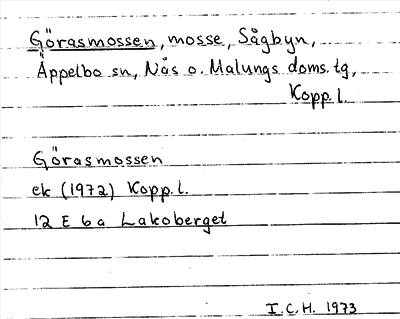 Görasmossen, mosse, Sågbyn,
Äppelbo sn, Nås o. Malungs doms. tg,
Kopp. l.
Görasmossen
ek (1972) Kopp. l.
12 E 6 a Lakoberget
I.C.H. 1973